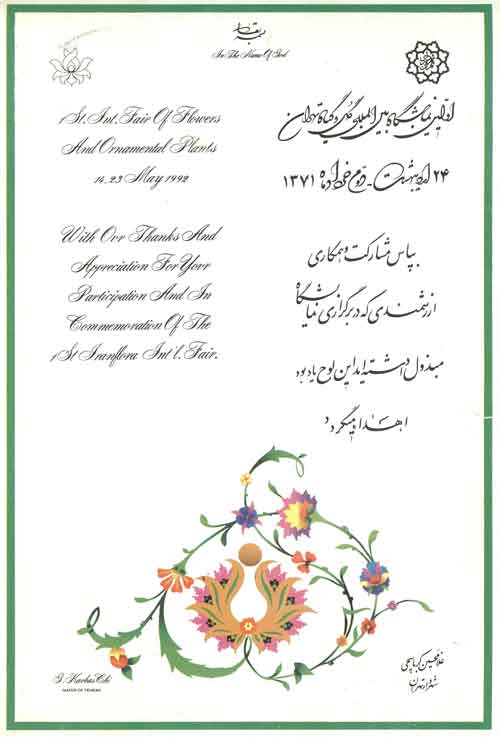 بسمه تعالی
In The Name Of God
1 St. Int. Fair Of Flowers
And Ornamental Plants
14_23 May 1992
With Our Thanks And
Appreciation For Your
Participation And In
Commemoration Of The
1 St Iranflora Int'l. Fair.
اولین نمایشگاه بین المللی گل و گیاه تهران
۲۴ اردیبهشت - دوم خرداد ماه ۱۳۷۱
بپاس مشارکت و همکاری
ارزشمندی که در برگزاری نمایشگاه
مبذول داشته اید این لوح یادبود
اهداء میگردد
G. Karbas Chi
MAYOR OF TEHRAN
غلامحسین کرباسچی
شهردار تهران